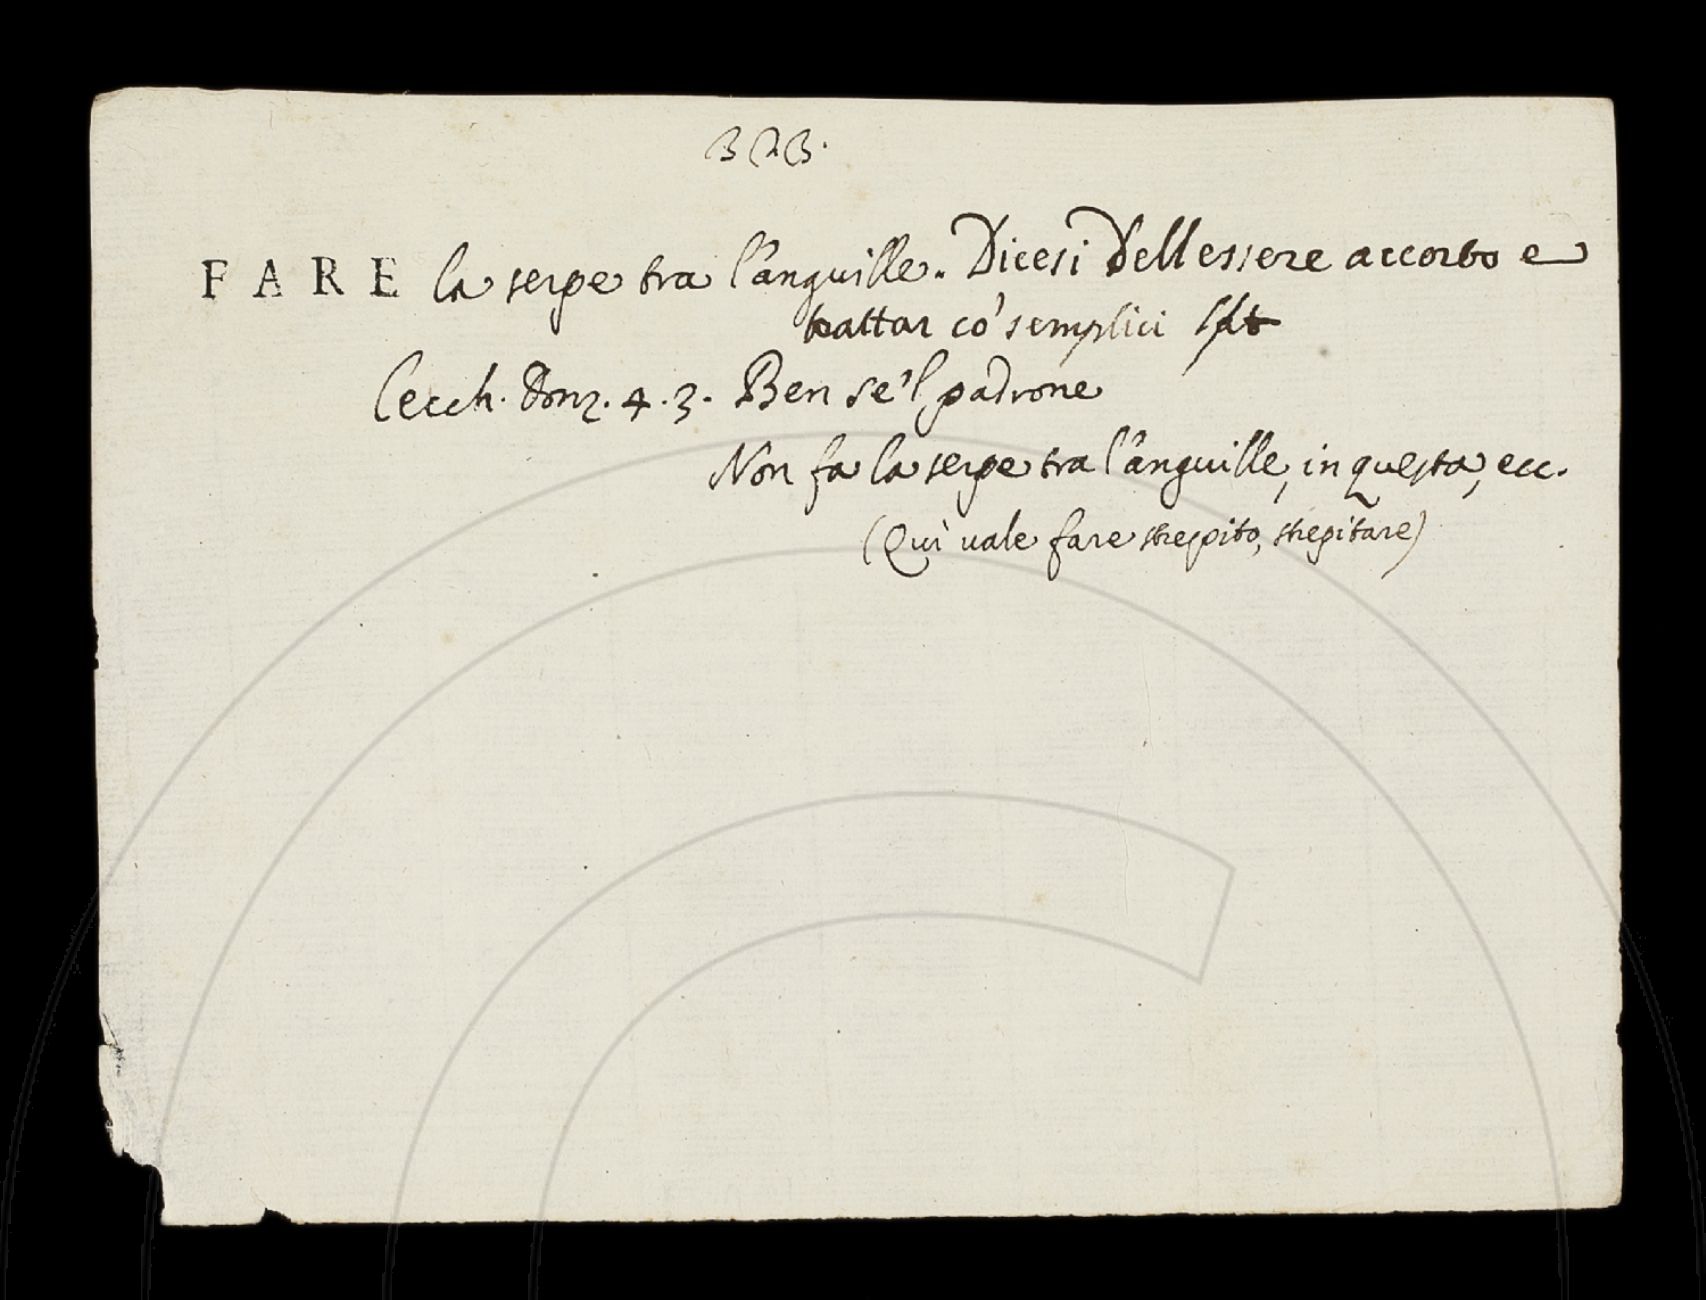 323.
FARE la serpe tra l'anguille. Dicesi dell essere accorto e
trattar co' semplici
Cecch. Donz. 4. 3. Ben se 'l padrone
Non fa la serpe tra l'anguille, in questa, ecc.
(Quì vale fare strepito, strepitare)